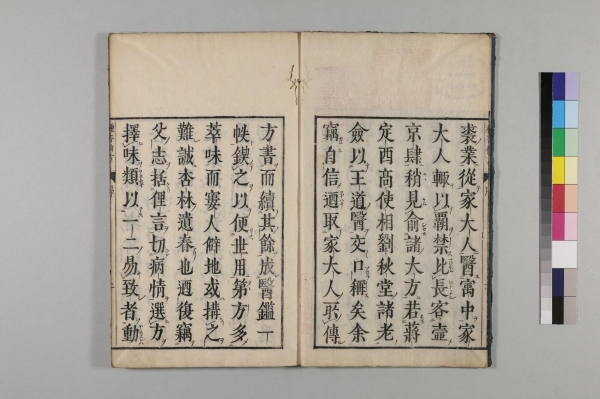 裘業從家大人醫寓中家
大人輒以覇禁比長客壺
京肆稍見俞諸大方若蔣
定西商使相劉秋堂諸老
僉以王道醫交口稱矣余
竊自信迺取家大人所傳
方書而續其餘成醫鑑一
帙鍥之以便世用第方多
萃味而窶人僻地或搆之
難誠杏林遺春也迺後竊
父志括俚言切病情選方
擇味類以一二易致者動